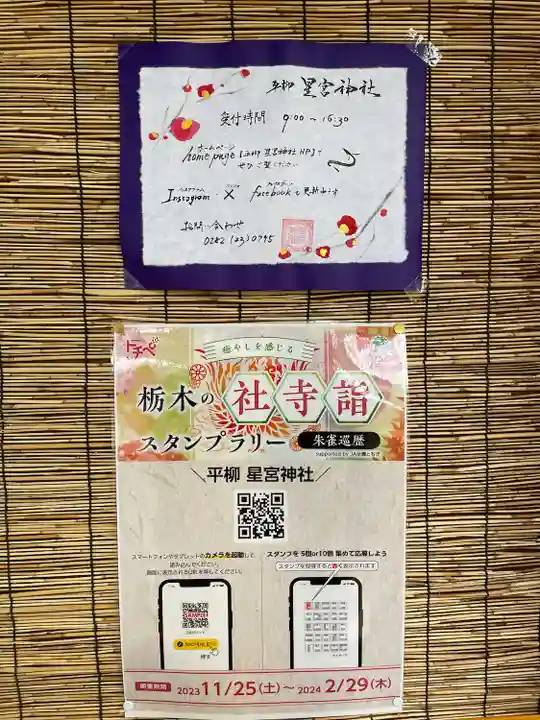 平柳 星宮神社
受付時間 9:00〜16:30
ホームページ
home page【平柳 星宮神社 HP】で
ぜひご覧ください
Instagram・X facebookも更新中です
お問い合わせ
0282(23)0795
トチペ
癒やしを感じる
栃木の社寺詣
スタンプラリー 朱雀巡歴
supported by JA全農とちぎ
平柳 星宮神社
スマートフォンやタブレットのカメラを起動して、
読み込んでください。
画面に表示されるURLを押してください。
スタンプを 5個or10個 集めて応募しよう
スタンプを獲得すると赤く表示されます
SAMPLE
押す
開催期間 2023 11/25(土)〜 2024 2/29(木)